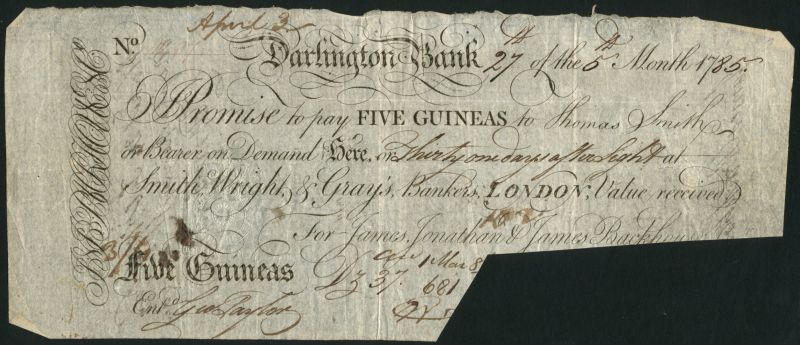 April 3
No Darlington Bank 27th of the 5th Month 1785.
I Promise to pay FIVE GUINEAS to Thomas Smith
or Bearer on Demand Here, or Thirty one days after Sight at
Smith, Wright, & Gray's, Bankers, LONDON; Value received
For James, Jonathan & James Backhouse
1 Mar 8
Five Guineas D 37. 681
Entd. Geo Taylor